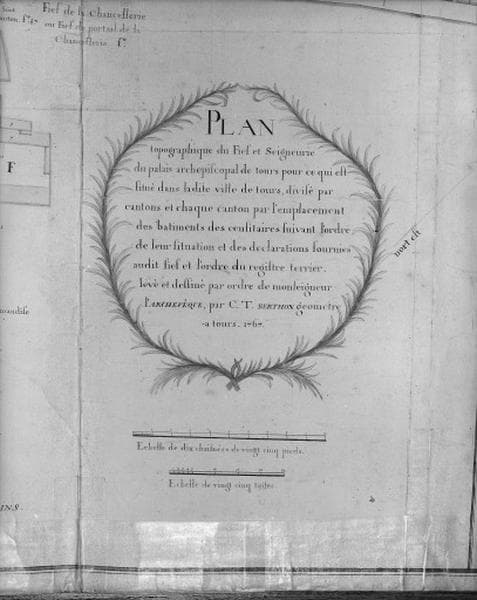 Fief de la Chancellerie
ou Fief du portail de la
Chancellerie f.º
F
PLAN
topographique du Fief et Seigneurie
du palais archepiscopal de tours pour ce qui est
situé dans ladite ville de tours, divisé par
cantons et chaque canton par l'emplacement
des batiments des censitaires suivant l'ordre
de leur situation et des declarations fournies
audit fief et l'ordre du registre terrier.
levé et dessiné par ordre de monseigneur
l'ARCHEVÊQUE, par C. T. BERTHON geometre
a tours. 1767.
nort est
Echelle de dix chainées de vingt cinq pieds.
Echelle de vingt cinq toises.
INS.